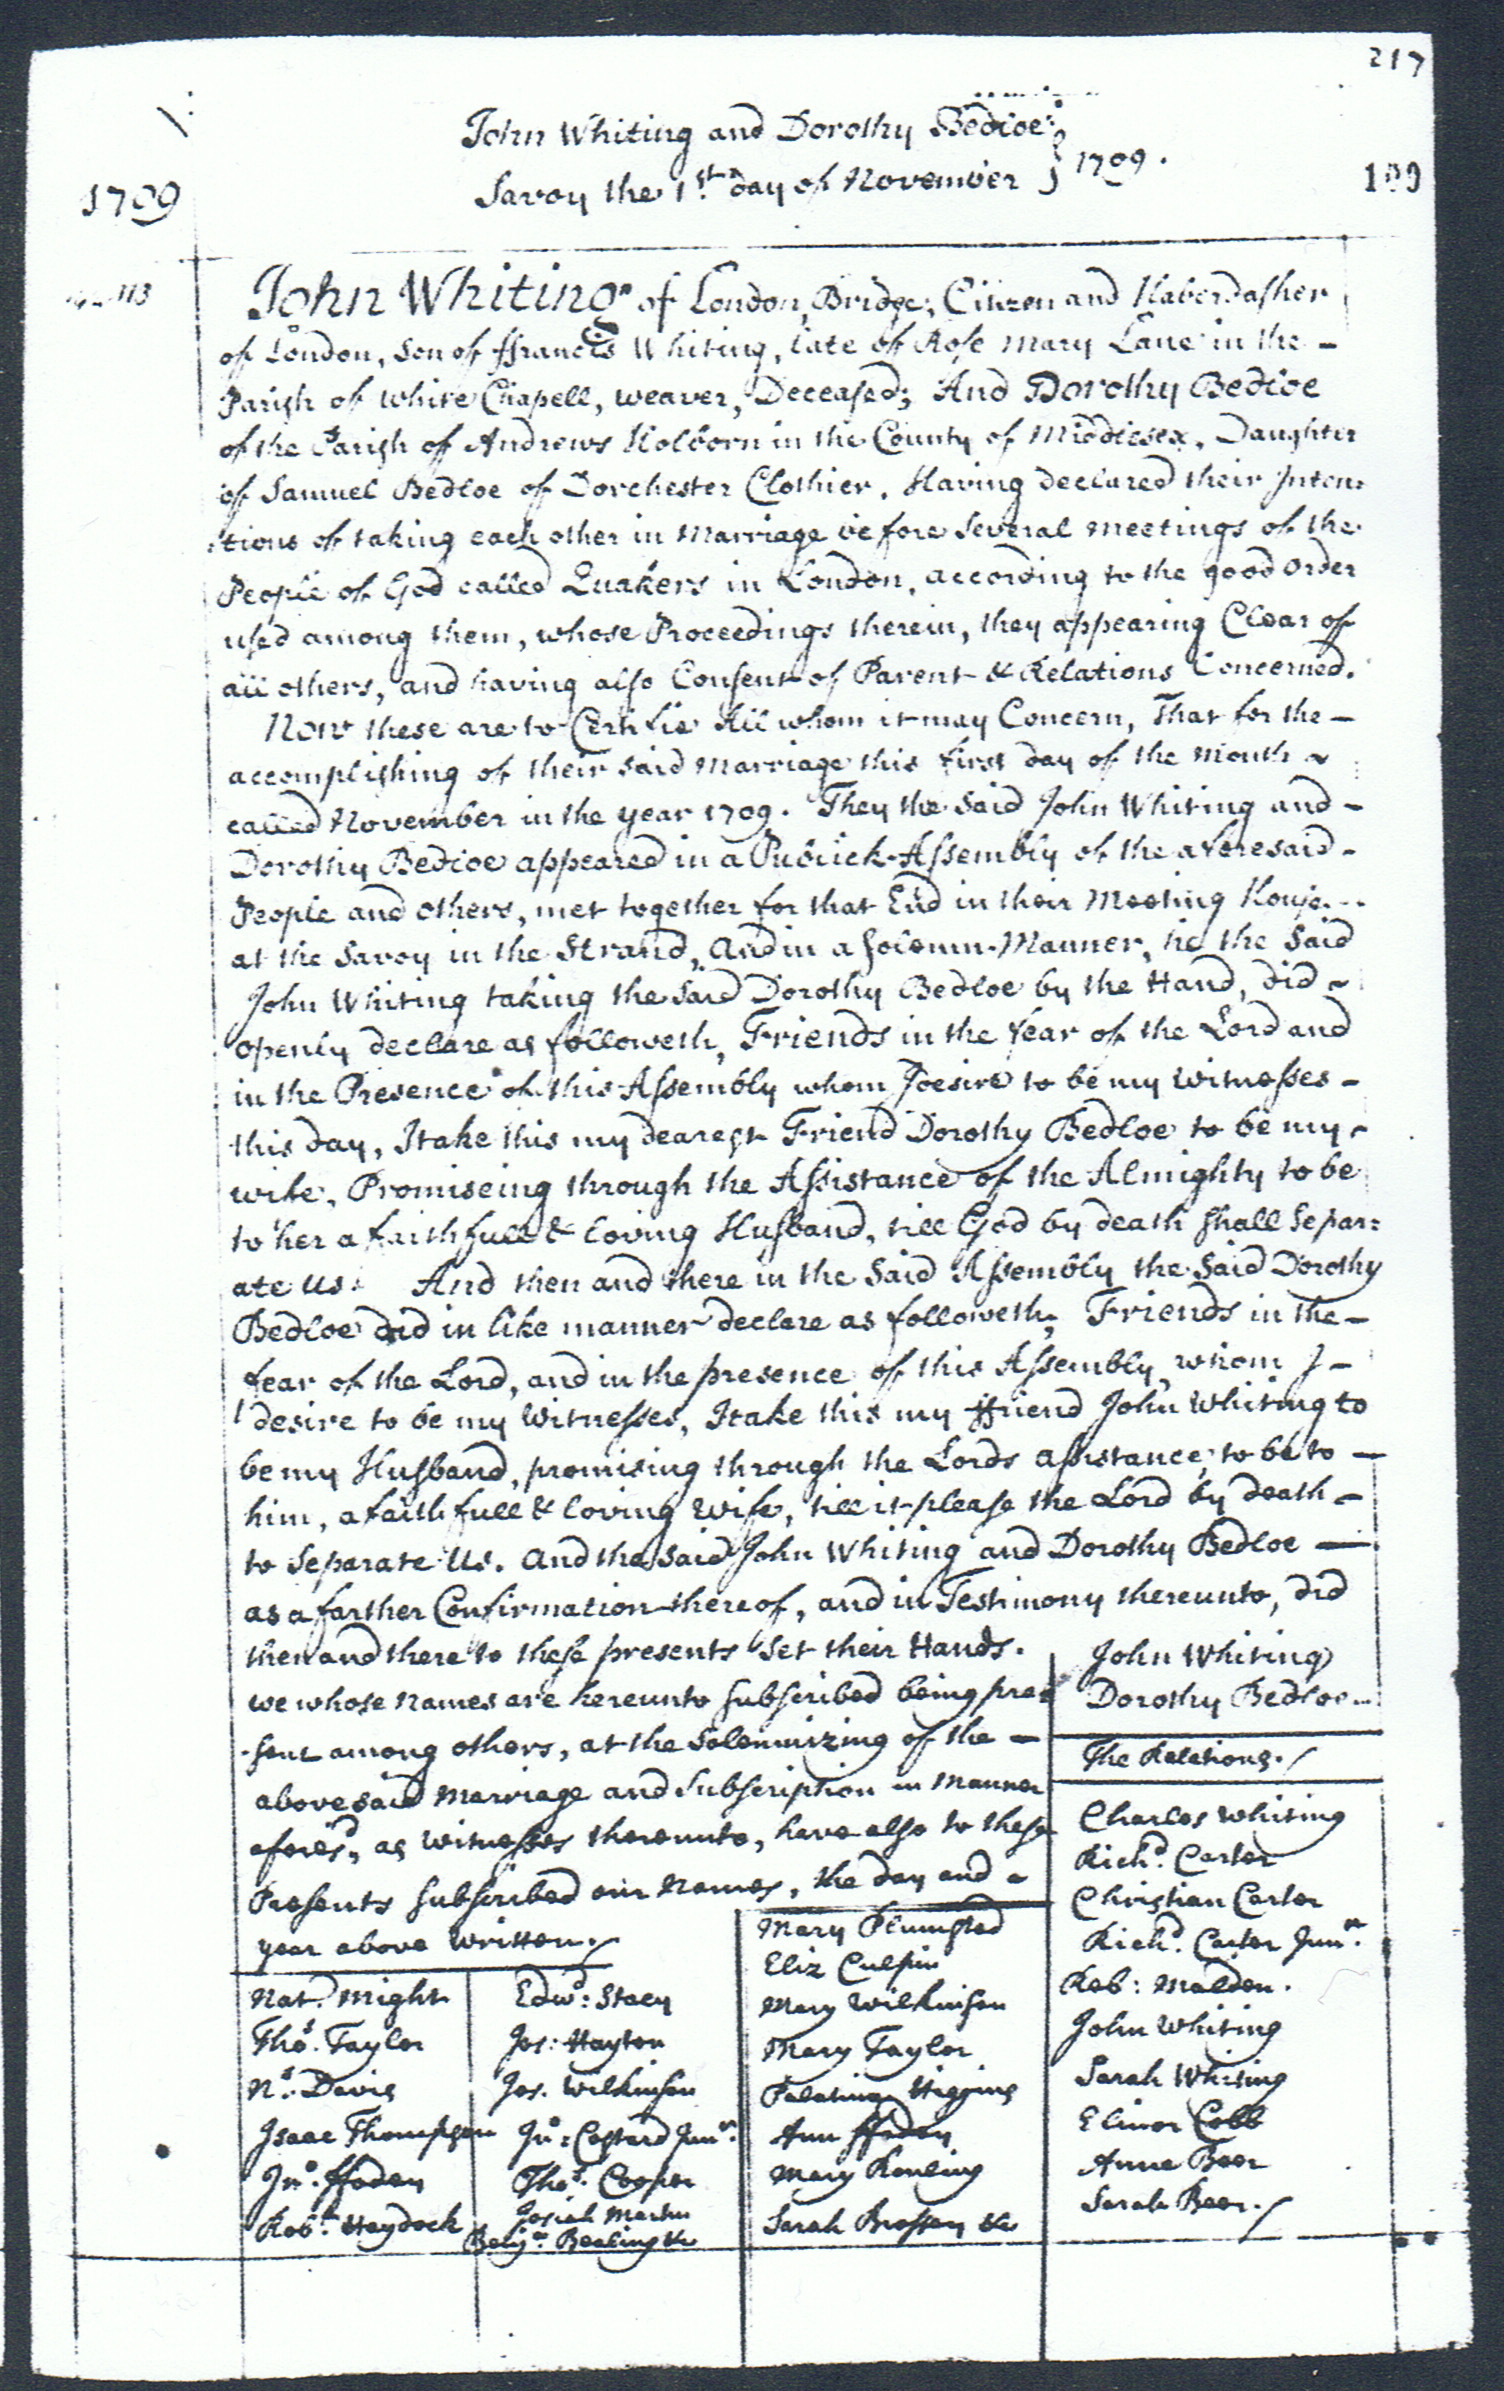 217
John Whiting and Dorothy Bedloe
Savoy the 1st day of November } 1709.
199
1709
113
John Whiting of London, Bridge, Citizen and Haberdasher
of London, Son of ffrancis Whiting, late of Rose Mary Lane in the -
Parish of White Chapell, weaver, Deceased; And Dorothy Bedloe
of the Parish of Andrews Holborn in the County of Middlesex, Daughter
of Samuel Bedloe of Dorchester Clothier. Having declared their Inten:
:tions of taking each other in Marriage before Several meetings of the
People of God called Quakers in London, according to the good order
used among them, whose Proceedings therein, they appearing Clear of
all others, and having also Consent of Parent & Relations Concerned.
Now these are to Certifie All whom it may Concern, That for the -
accomplishing of their said Marriage this first day of the Month ~
called November in the year 1709. They the said John Whiting and -
Dorothy Bedloe appeared in a Publick Assembly of the aforesaid -
People and others, met together for that End in their Meeting House
at the Savoy in the Strand, And in a solemn Manner, he the Said
John Whiting taking the said Dorothy Bedloe by the Hand, did ~
openly declare as followeth, Friends in the fear of the Lord and
in the Presence of this Assembly whom I desire to be my Witnesses -
this day, I take this my dearest Friend Dorothy Bedloe to be my -
wife, Promiseing through the Assistance of the Almighty to be
to her a faithfull & loving Husband, till God by death shall Separ:
ate us: And then and there in the Said Assembly the Said Dorothy
Bedloe did in like manner declare as followeth; Friends in the -
fear of the Lord, and in the presence of this Assembly, whom I -
desire to be my Witnesses, I take this my ffriend John Whiting to
be my Husband, promising through the Lords assistance, to be to -
him, a faithfull & loving Wife, till it please the Lord by death -
to Separate Us. And the said John Whiting and Dorothy Bedloe -
as a farther Confirmation thereof, and in Testimony thereunto, did
then and there to these presents Set their Hands.
John Whiting
Dorothy Bedloe
we whose names are hereunto subscribed being pre
sent among others, at the Solemnizing of the -
abovesaid Marriage and Subscription in Manner
aforesd, as Witnesses thereunto, have also to these
Presents subscribed our Names, the day and
year above written.
The Relations.
Charles Whiting
Richd. Carter
Christian Carter
Richd. Carter Junr.
Rob: Maldon.
John Whiting
Sarah Whiting
Elinor Cobb
Anne Beer
Sarah Beer.
Mary Plumsted
Eliz Culpin
Mary Wilkinson
Mary Taylor
Palatina Higgins
Ann ffoden
Mary
Sarah Brassey &c
Nat. Might
Thos. Taylor
Ns. Davis
Isaac Thompson
Jno. ffoden
Robt. Haydock
Edwd: Stacy
Jos: Hayton
Jos. Wilkinson
Jno: Costard Junr.
Thos. Cooper
Josiah Martin
Benjn. Bealing &c